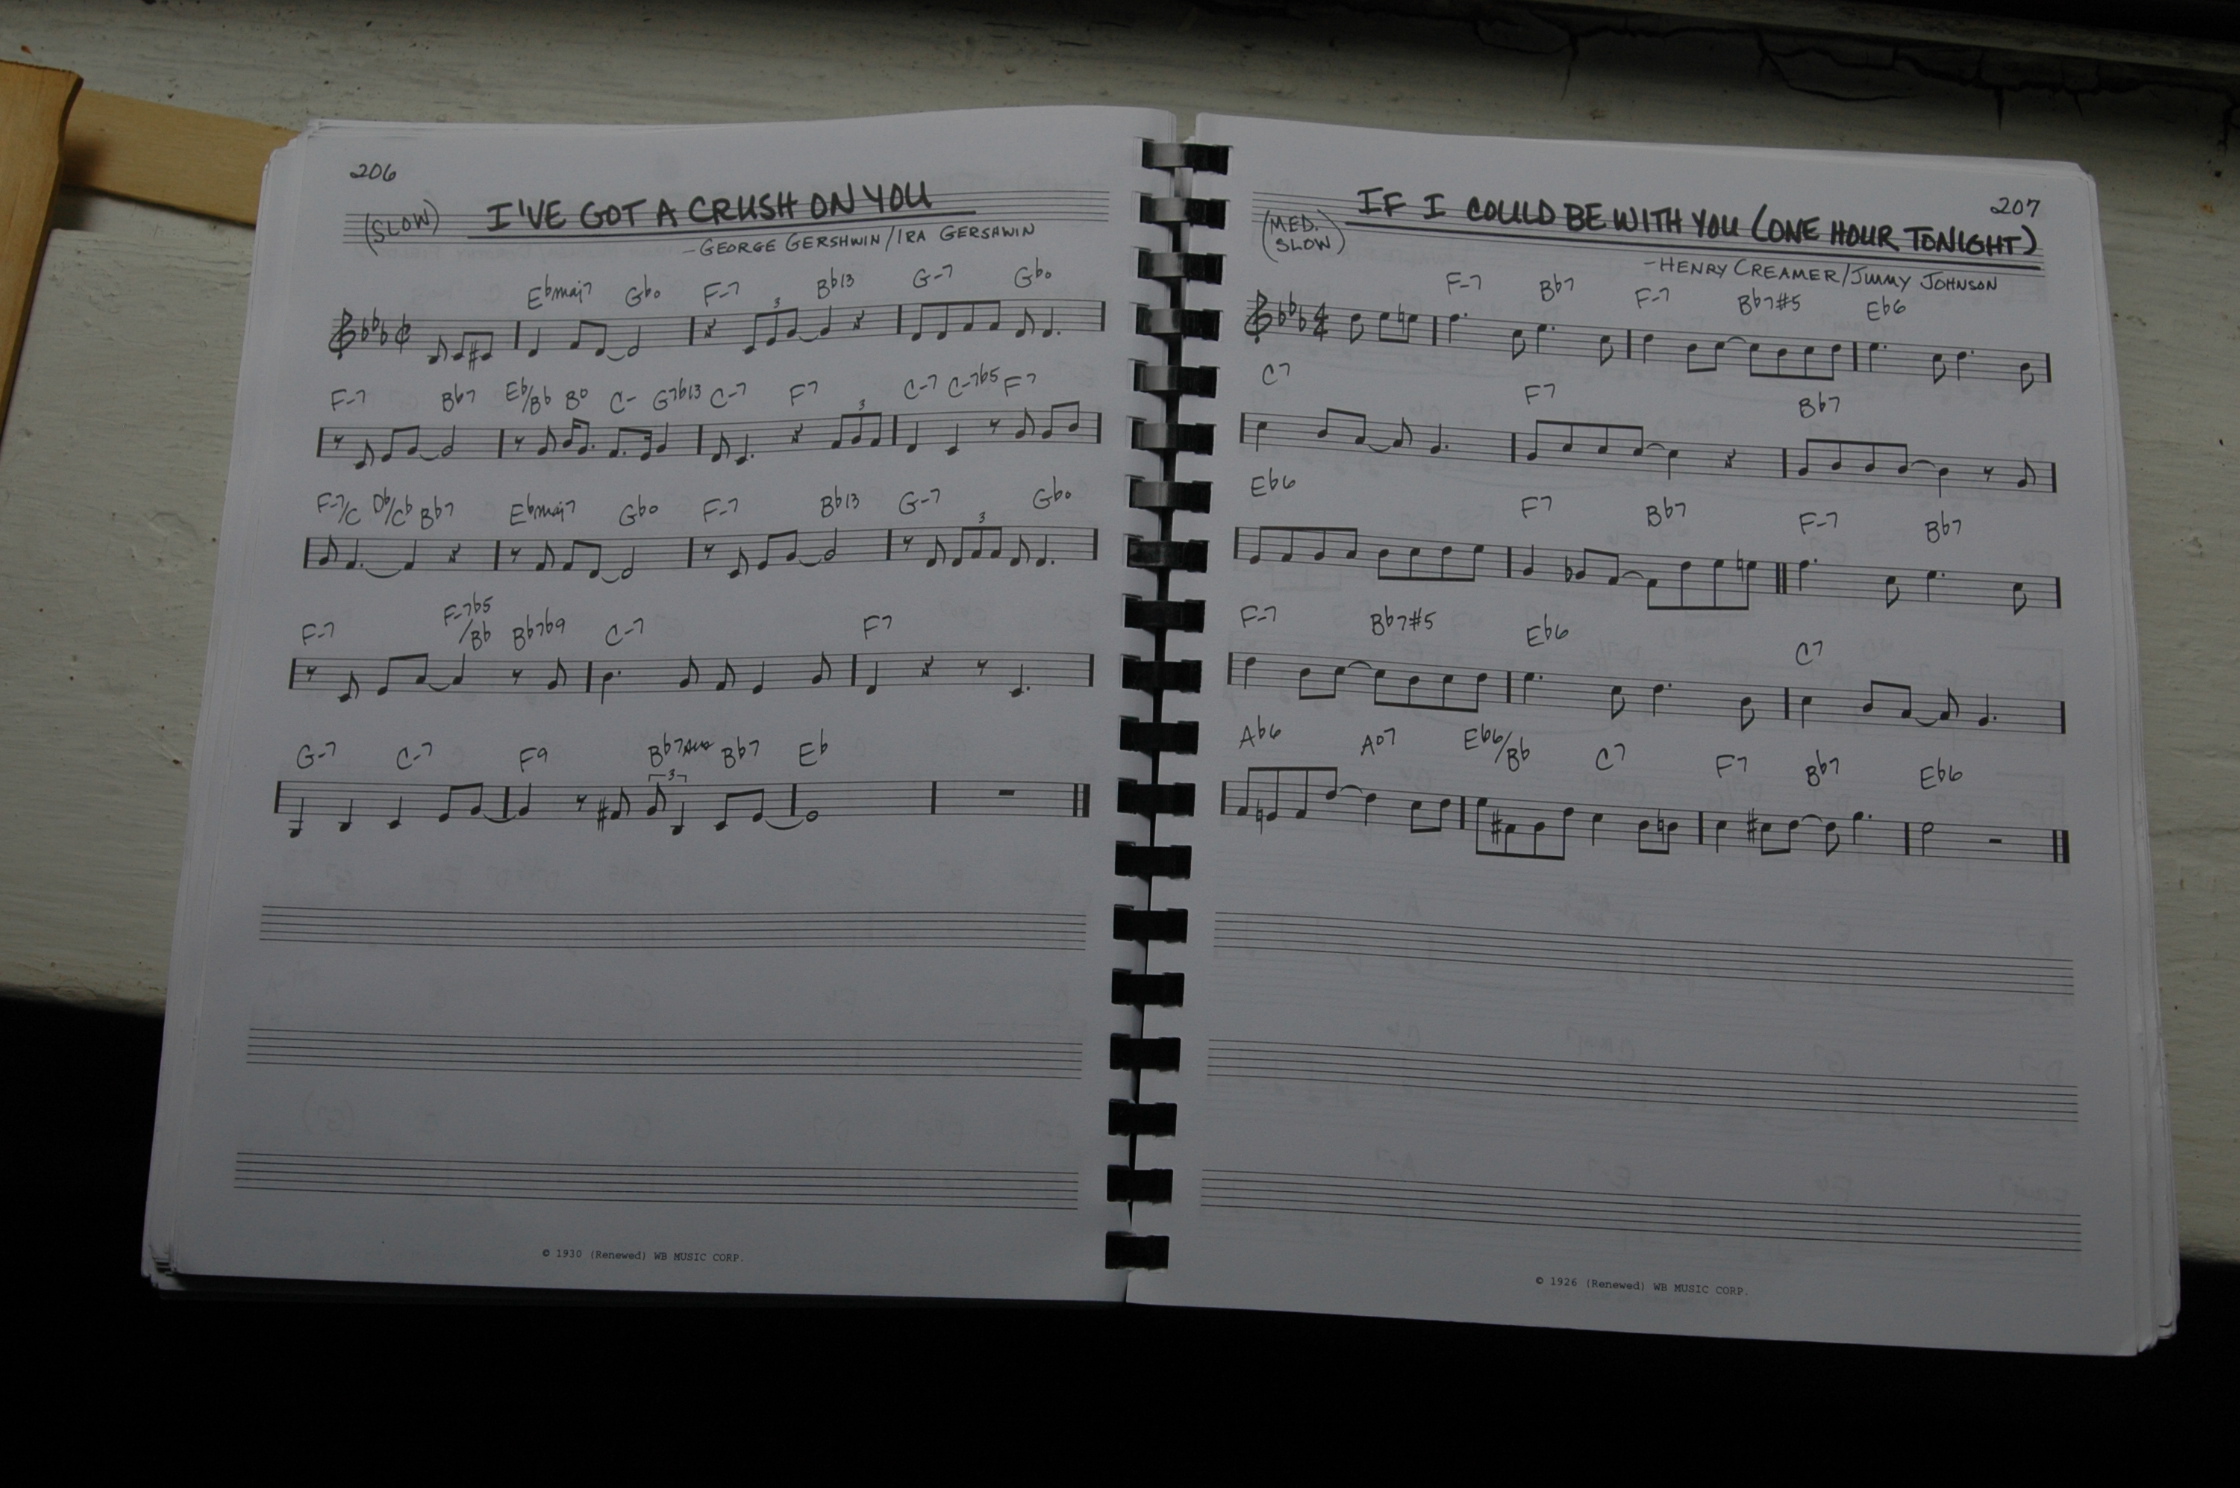 206
I'VE GOT A CRUSH ON YOU
(SLOW)
-GEORGE GERSHWIN/IRA GERSHWIN
Ebmaj7 Gbo F-7 Bb13 G-7 Gbo
3
F-7 Bb7 Eb/Bb Bo C- G7b13 C-7 F7 C-7 C-7b5 F7
3
F-7/C Db/Cb Bb7 Ebmaj7 Gbo F-7 Bb13 G-7 Gbo
3
F-7 F-7b5/Bb Bb7b9 C-7 F7
G-7 C-7 F9 Bb7 Bb7 Eb
3
© 1930 (Renewed) WB MUSIC CORP.
207
IF I COULD BE WITH YOU (ONE HOUR TONIGHT)
(MED. SLOW)
-HENRY CREAMER/JIMMY JOHNSON
F-7 Bb7 F-7 Bb7#5 Eb6
4
4
C7 F7 Bb7
Eb6 F7 Bb7 F-7 Bb7
F-7 Bb7#5 Eb6 C7
Ab6 Ao7 Eb6/Bb C7 F7 Bb7 Eb6
© 1926 (Renewed) WB MUSIC CORP.